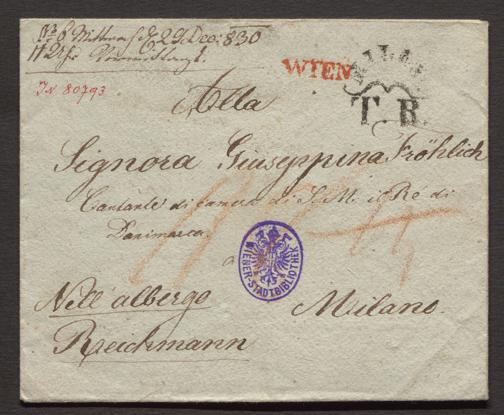 No 6 Mittwoch d 29 Dec: 830
11 Uhr Vormittags.
IN 80793
WIEN
MILA
T. R.
Alla
Signora Giuseppina Fröhlich
Cantante di camera di S. M. il Ré di
Danimarca.
WIENER-STADTBIBLIOTHEK
Nell'albergo
Milano.
Reichmann